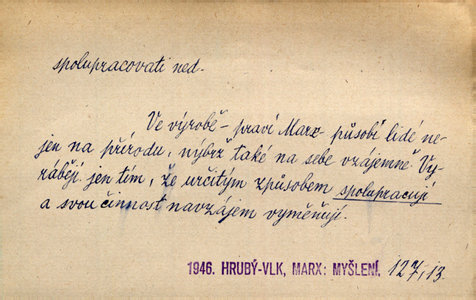 spolupracovati ned.
Ve výrobě – praví Marx – působí lidé ne-
jen na přírodu, nýbrž také na sebe vzájemně. Vy-
rábějí jen tím, že určitým způsobem spolupracují
a svou činnost navzájem vyměňují.
1946. HRUBÝ-VLK, MARX: MYŠLENÍ. 127,13